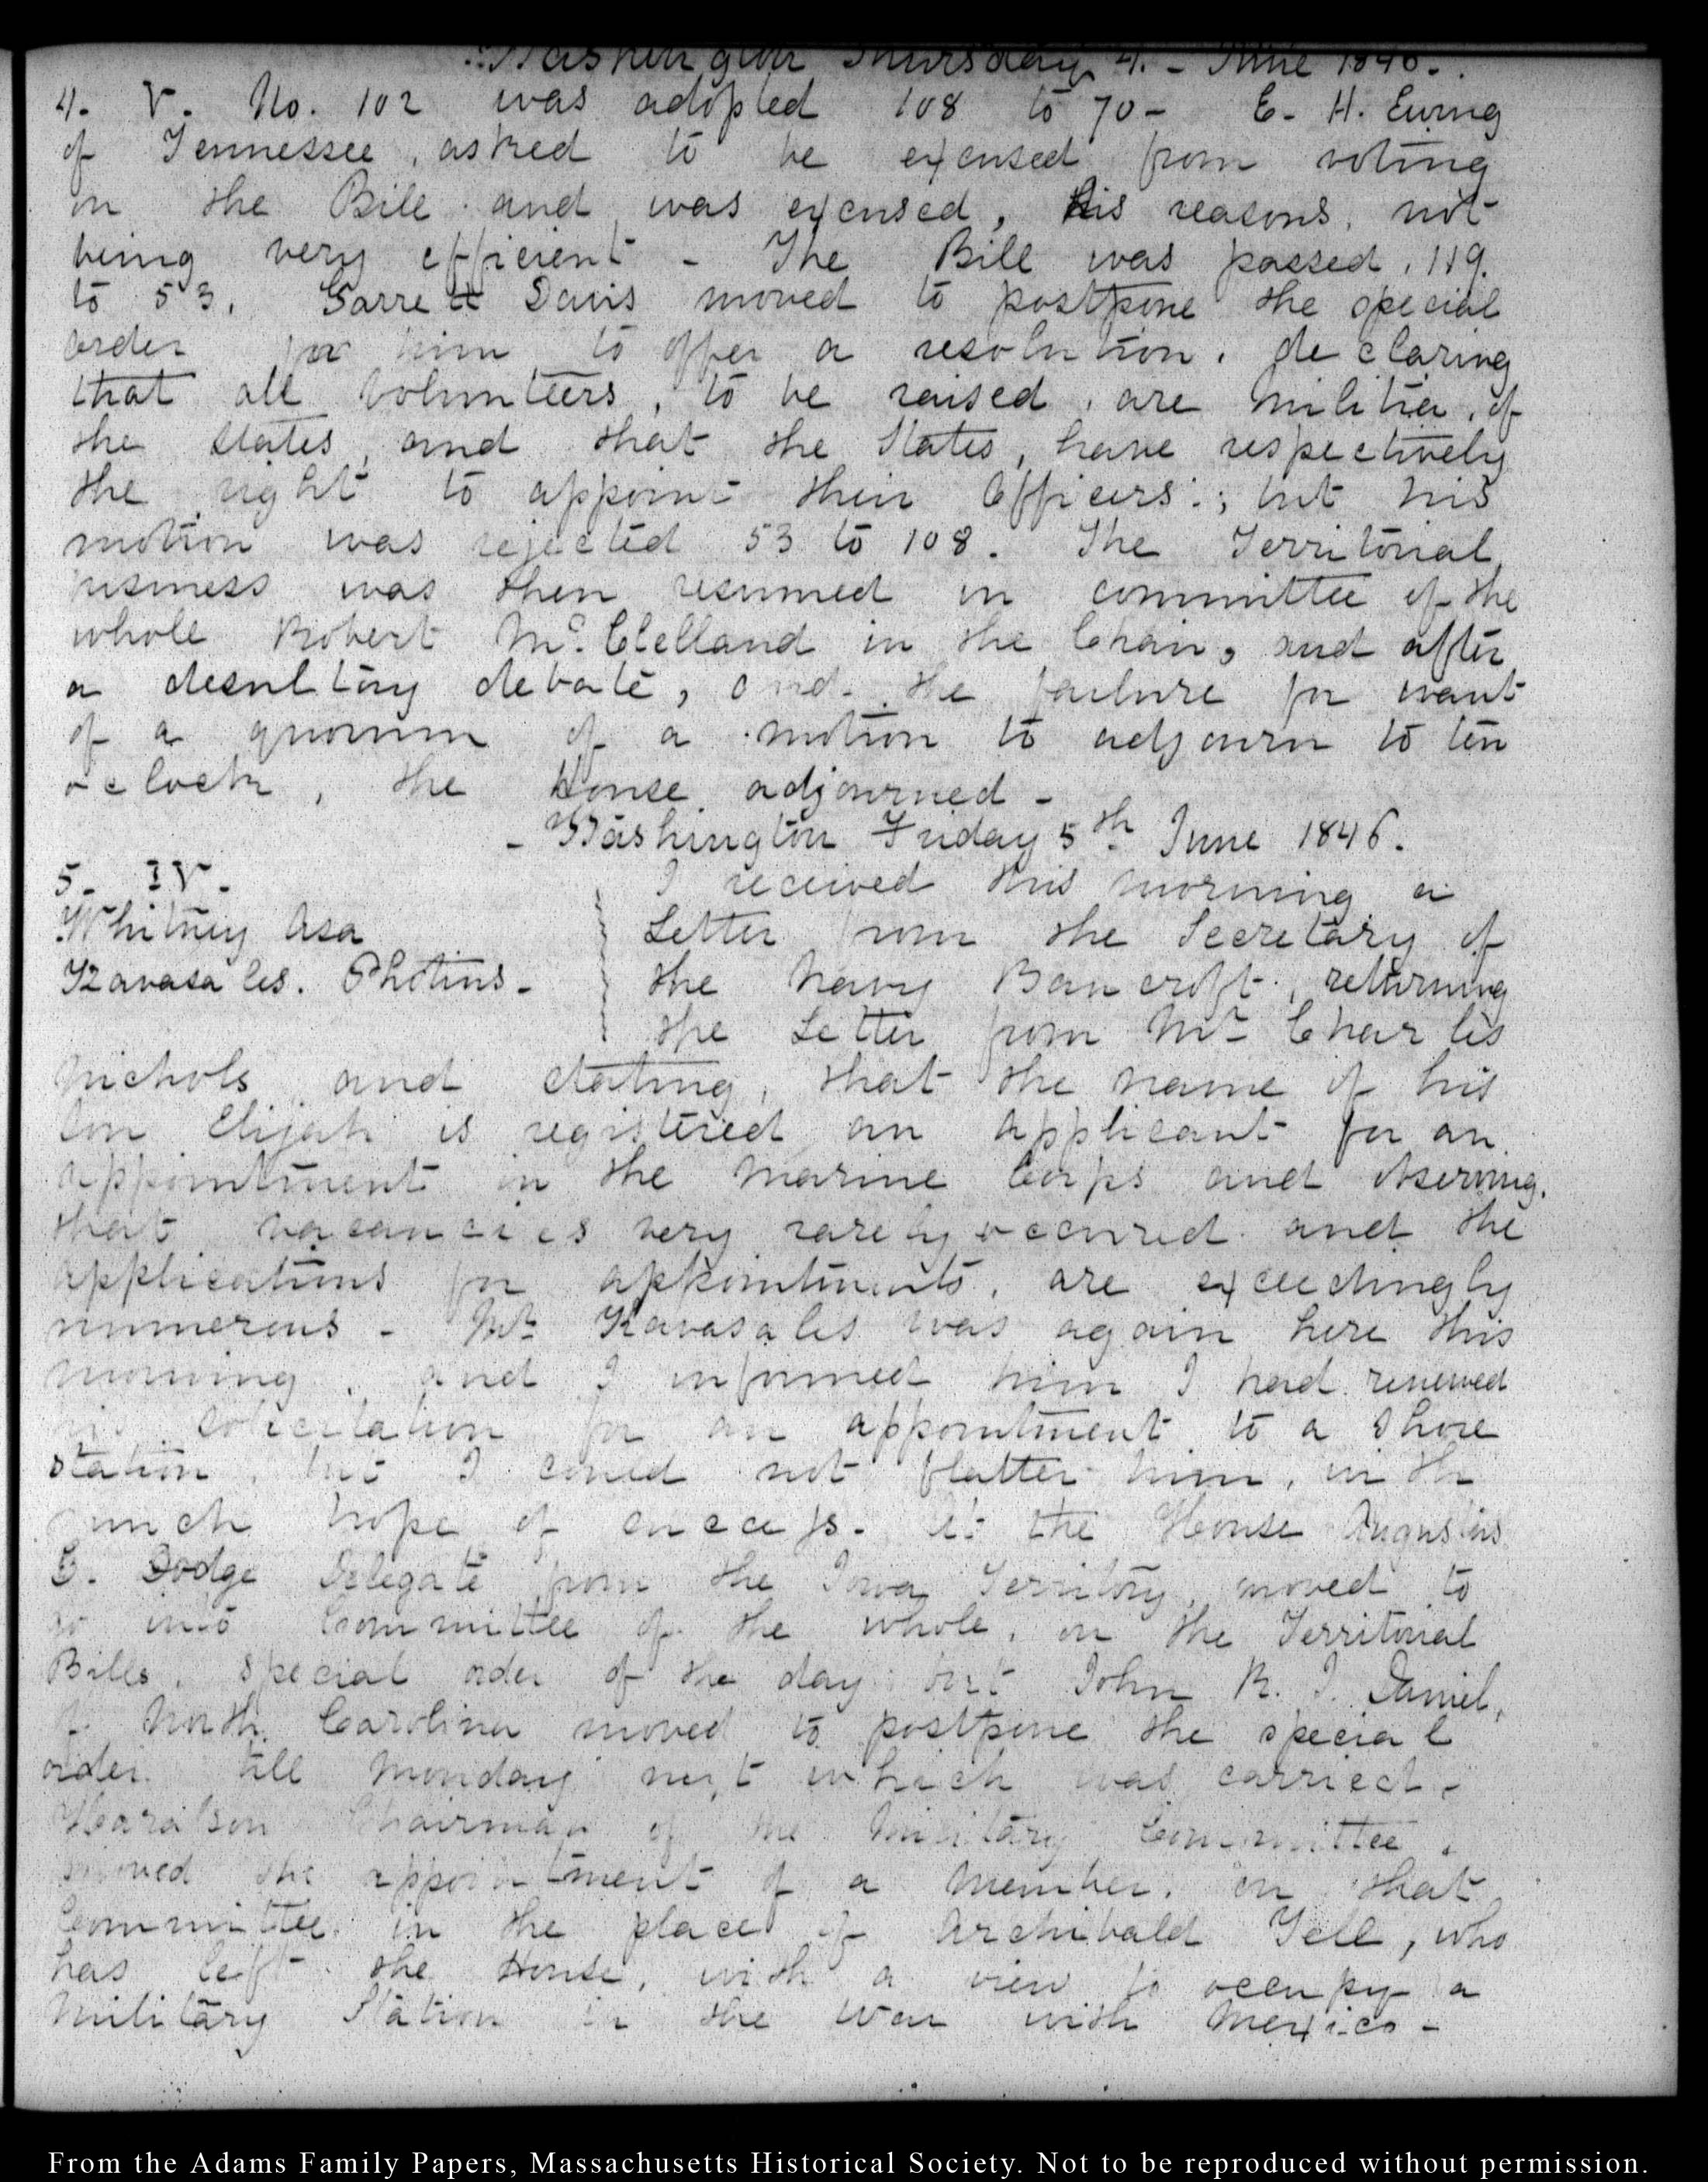 Washington Thursday 4. - June 1846.
4. V. No. 102 was adopted 108 to 70 - E. H. Ewing
of Tennessee, asked to be excused from voting
on the Bill and was excused, his reasons, not
being very efficient - The Bill was passed, 119.
to 53. Garrett Davis moved to postpone the special
order for him to offer a resolution, declaring
that all Volunteers, to be raised, are militia, of
the States, and that the States, have respectively
the right to appoint their Officers; but his
motion was rejected 53 to 108. The Territorial
business was then resumed in committee of the
whole Robert Mc. Clelland in the Chair, and after
a desultory debate, and the failure for want
of a quorum of a motion to adjourn to ten
oclock, the House adjourned -
- Washington Friday 5th June 1846.
5. IV.
Whitney Asa
Kavasales. Photius -
I received this morning a
Letter from the Secretary of
the Navy Bancroft, returning
the Letter from Mr Charles
Nichols and stating, that the name of his
Son Elijah is registered an applicant for an
appointment in the Marine Corps and observing.
that vacancies very rarely occurred and the
applications for appointments, are exceedingly
numerous - Mr Kavasales was again here this
morning, and I informed him I had renewed
his solicitation for an appointment to a Shore
station, but I could not flatter him, with
much hope of success. At the House Augustus
C. Dodge Delegate from the Iowa Territory moved to
go into Committee of the whole, on the Territorial
Bills, special order of the day but John R. J. Daniel,
of North Carolina moved to postpone the special
order till Monday next which was carried -
Haralson Chairman of the Military Committee,
moved the appointment of a member, on that
Committee in the place of Archibald Yell, who
has left the House, with a view to occupy a
Military Station in the War with Mexico -
From the Adams Family Papers, Massachusetts Historical Society. Not to be reproduced without permission.